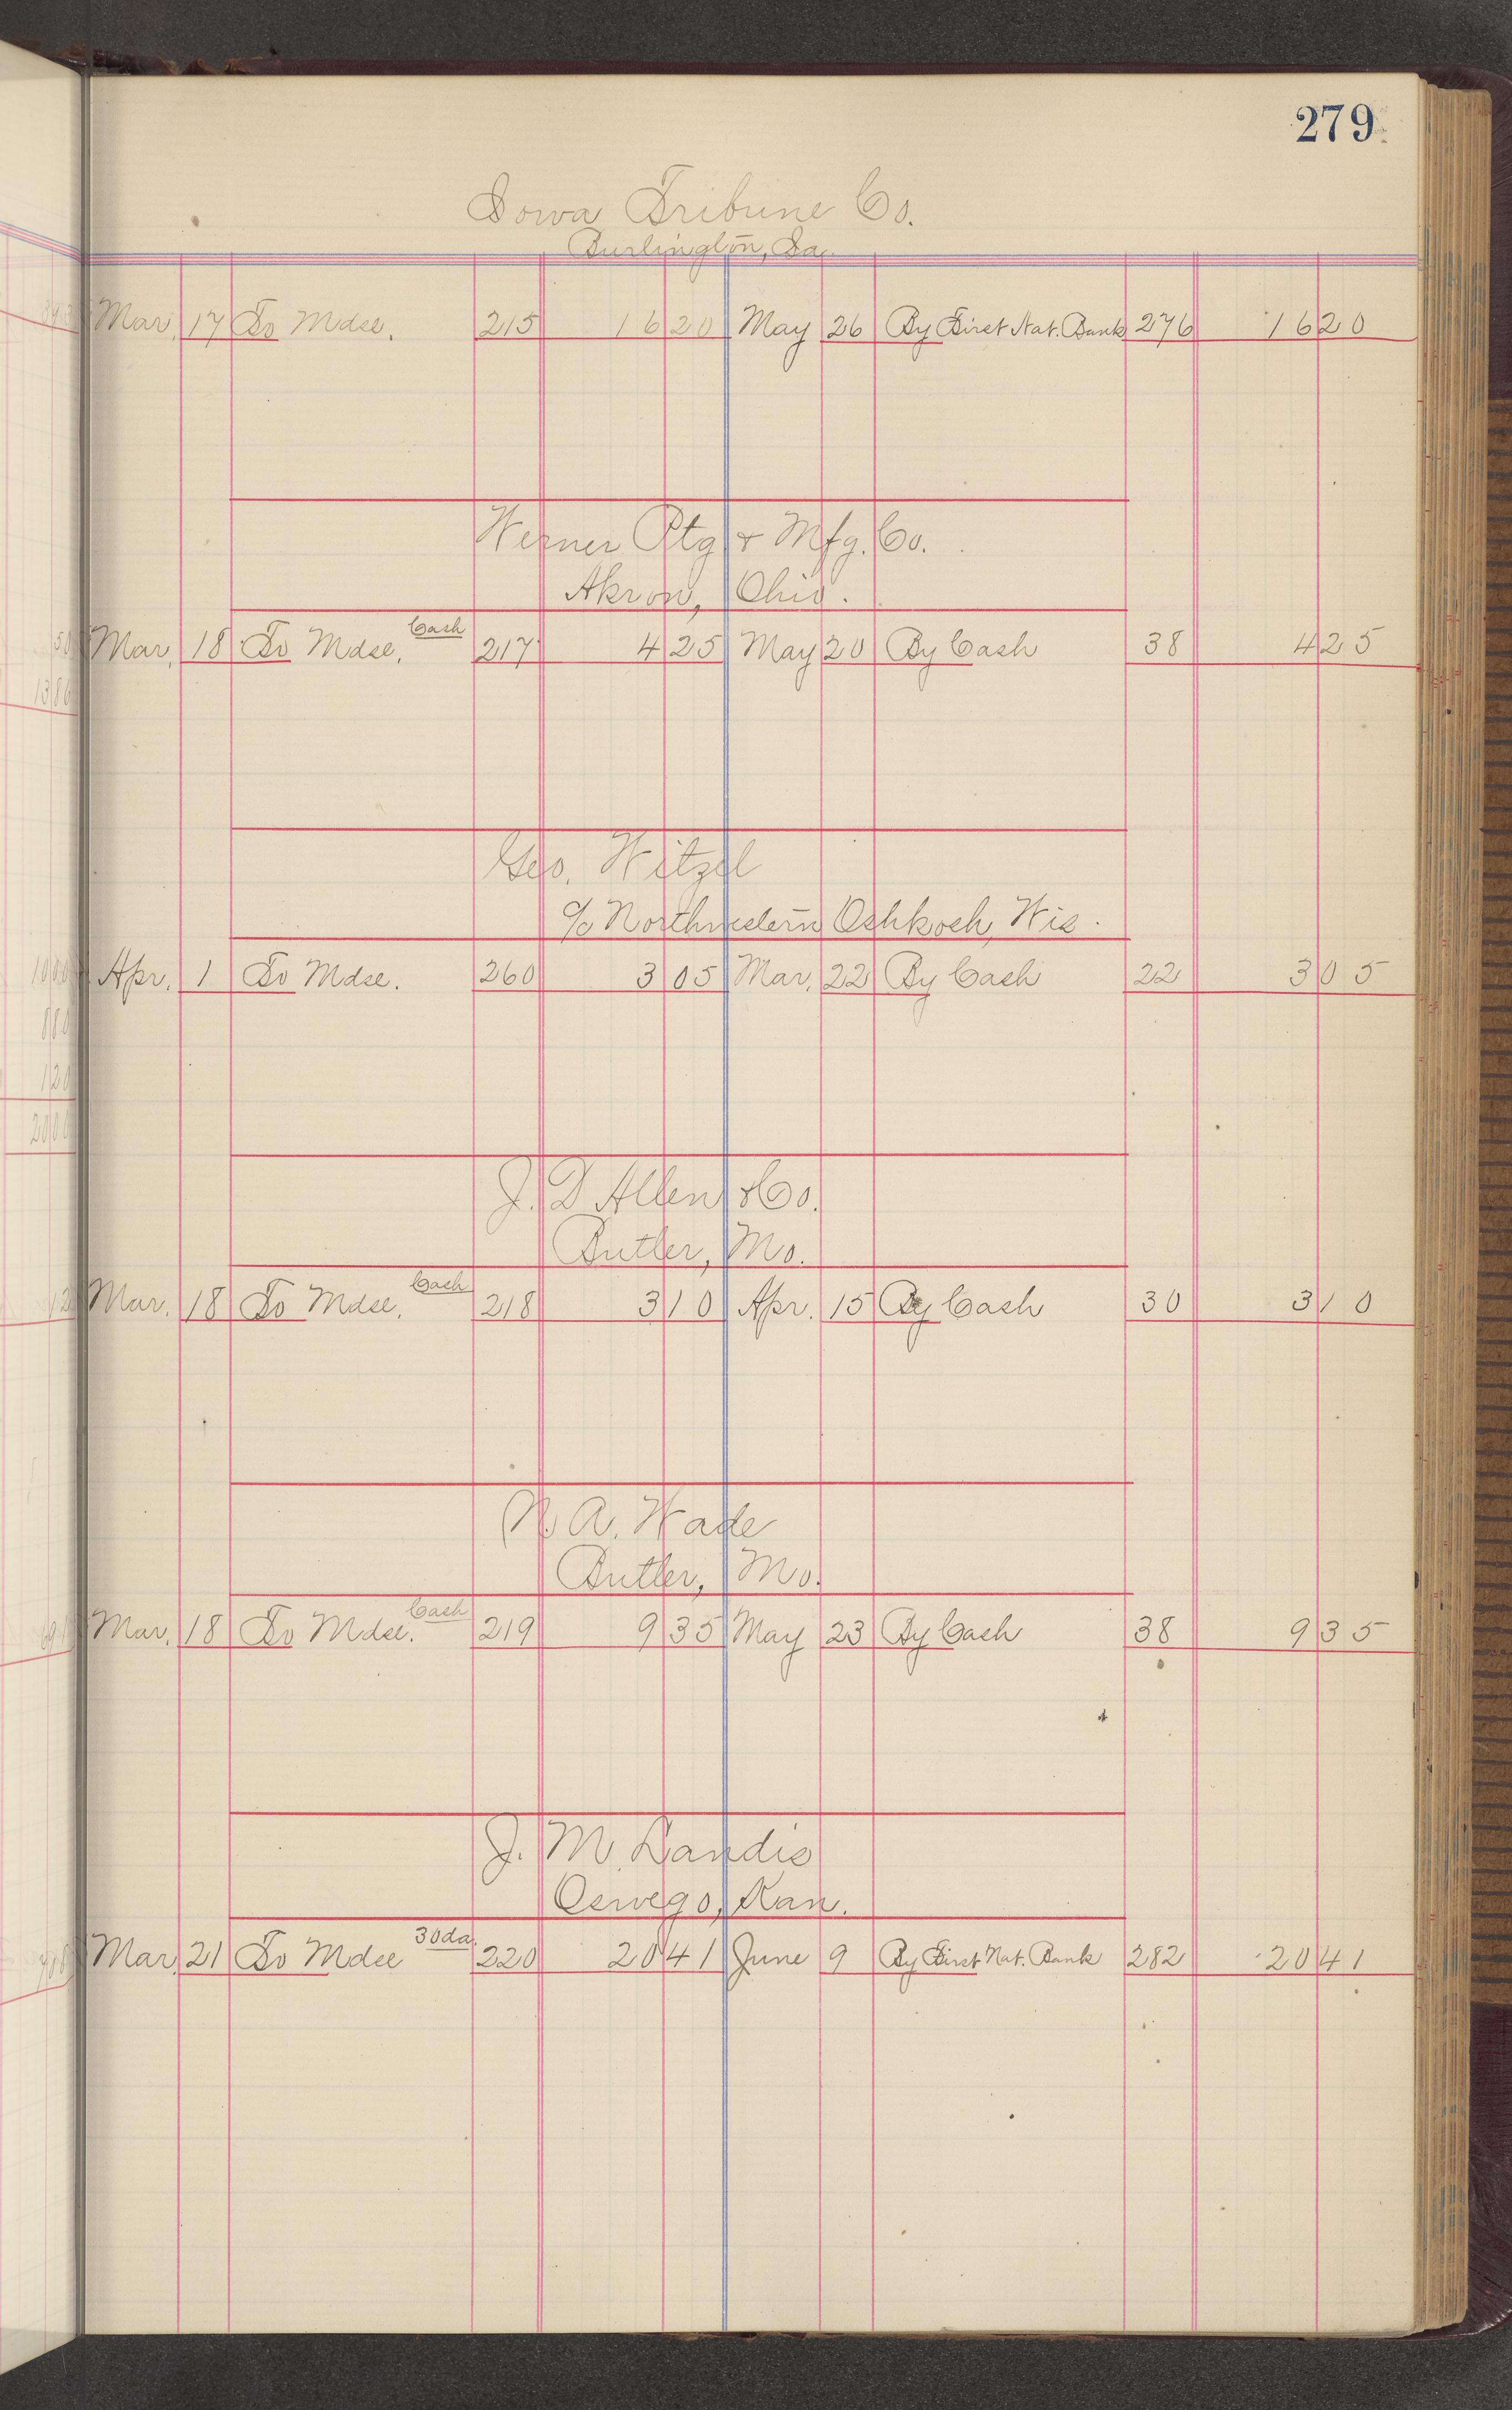 279
Iowa Tribune Co.
Burlington, Ia.
Mar. 17 To Mdse. 215 16 20 May 26 By First Nat. Bank 276 16 20
Werner Ptg & Mfg. Co.
Akron, Ohio.
Mar. 18 To Mdse. Cash 217 4 25 May 20 By Cash 38 4 25
Geo. Witzel
c/o Northwestern Oshkosh, Wis.
Apr. 1 To Mdse. 260 3 05 Mar. 22 By Cash 22 3 05
J. D Allen & Co.
Butler, Mo.
Mar. 18 To Mdse. Cash 218 3 10 Apr. 15 By Cash 30 3 10
N. A. Wade
Butler, Mo.
Mar. 18 To Mdse. Cash 219 9 35 May 23 By Cash 38 9 35
J. M. Landis
Oswego, Kan.
Mar. 21 To Mdse 30 da. 220 20 41 June 9 By First Nat. Bank 282 20 41